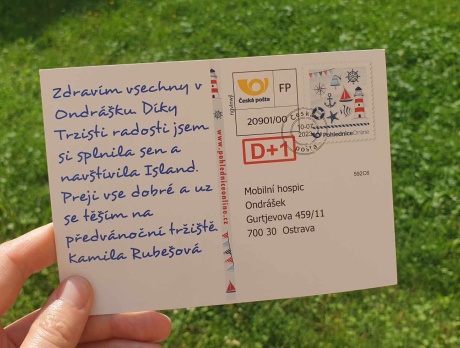 Zdravím všechny v
Ondrášku. Díky
Tržišti radosti jsem
si splnila sen a
navštívila Island.
Preji vse dobré a uz
se těším na
předvánoční tržiště
Kamila Rubešová
www.pohledniceonline.cz
Česká pošta
FP
20901/00
D+1
Česká
pošta
PohledniceOnline
592C8
Mobilní hospic
Ondrášek
Gurtjevova 459/11
700 30 Ostrava